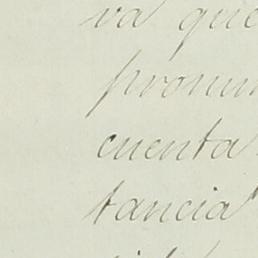 va que
pronun
cuenta
tancia